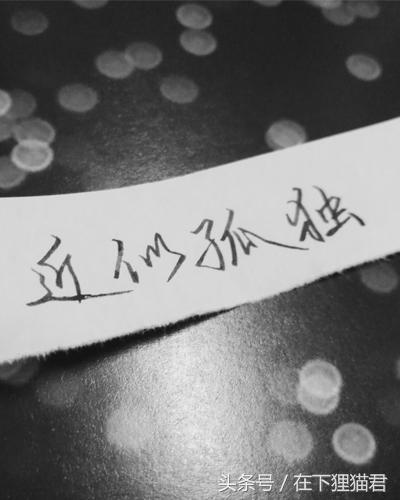 近似孤独
头条号 / 在下狸猫君